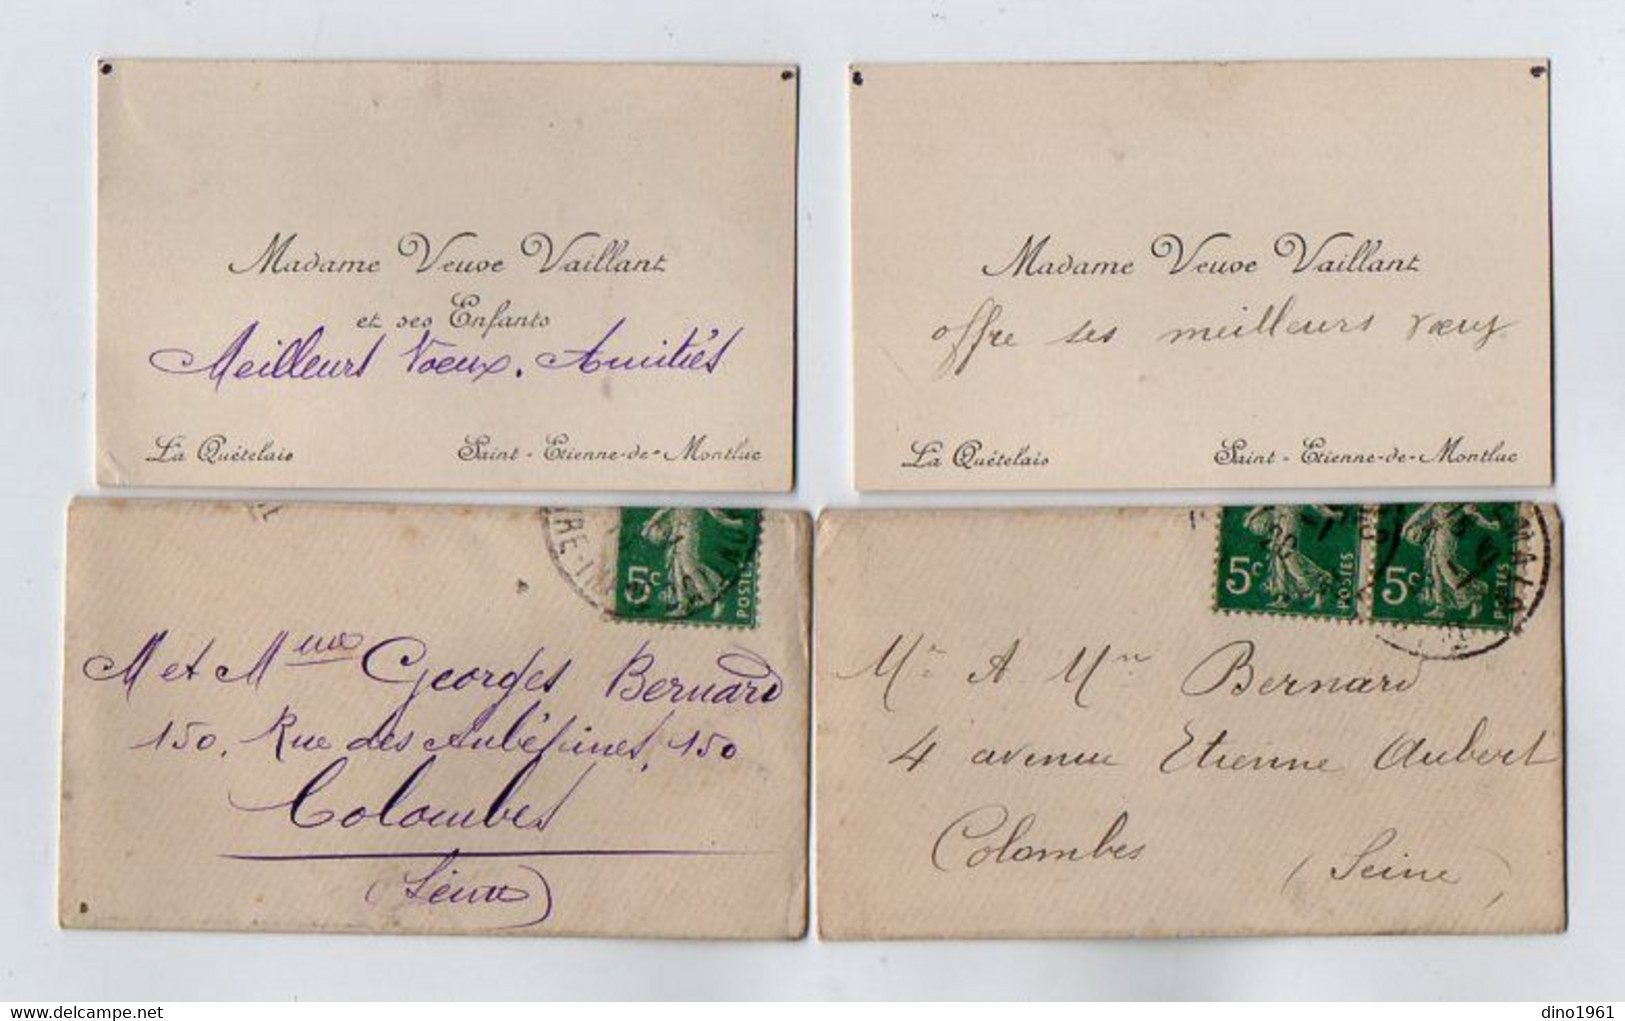 Madame Veuve Vaillant
et ses Enfants
Meilleurs Voeux. Amitiés
La Quételais
Saint-Etienne-de-Montluc
Madame Veuve Vaillant
offre ses meilleurs vœux
La Quételais
Saint-Etienne-de-Montluc
5c
POSTES
M et Mme Georges Bernard
150, Rue des Aubépines, 150
Colombes
(Seine)
5c
POSTES
5c
POSTES
Mr A Mme Bernard
4 avenue Etienne Aubert
Colombes
(Seine)
dino1961